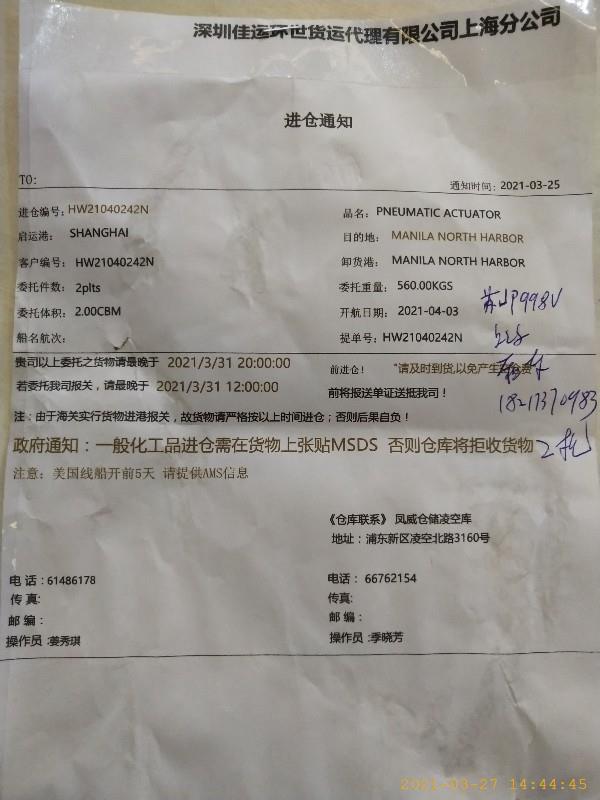 深圳佳运环世货运代理有限公司上海分公司
进仓通知
TO:
通知时间: 2021-03-25
进仓编号: HW21040242N 品名: PNEUMATIC ACTUATOR
启运港: SHANGHAI 目的地: MANILA NORTH HARBOR
客户编号: HW21040242N 卸货港: MANILA NORTH HARBOR
委托件数: 2plts 委托重量: 560.00KGS
委托体积: 2.00CBM 开航日期: 2021-04-03
船名航次: 提单号: HW21040242N
贵司以上委托之货物请最晚于 2021/3/31 20:00:00 前进仓! "请及时到货,以免产生
若委托我司报关, 请最晚于 2021/3/31 12:00:00 前将报送单证送抵我司!
18217370983
注: 由于海关实行货物进港报关, 故货物请严格按以上时间进仓; 否则后果自负!
政府通知: 一般化工品进仓需在货物上张贴MSDS 否则仓库将拒收货物
2托
注意: 美国线船开前5天 请提供AMS信息
《仓库联系》 凤威仓储凌空库
地址: 浦东新区凌空北路3160号
电话:61486178 电话: 66762154
传真: 传真:
邮编: 邮编:
操作员:姜秀琪 操作员:季晓芳
2021-03-27 14:44:45